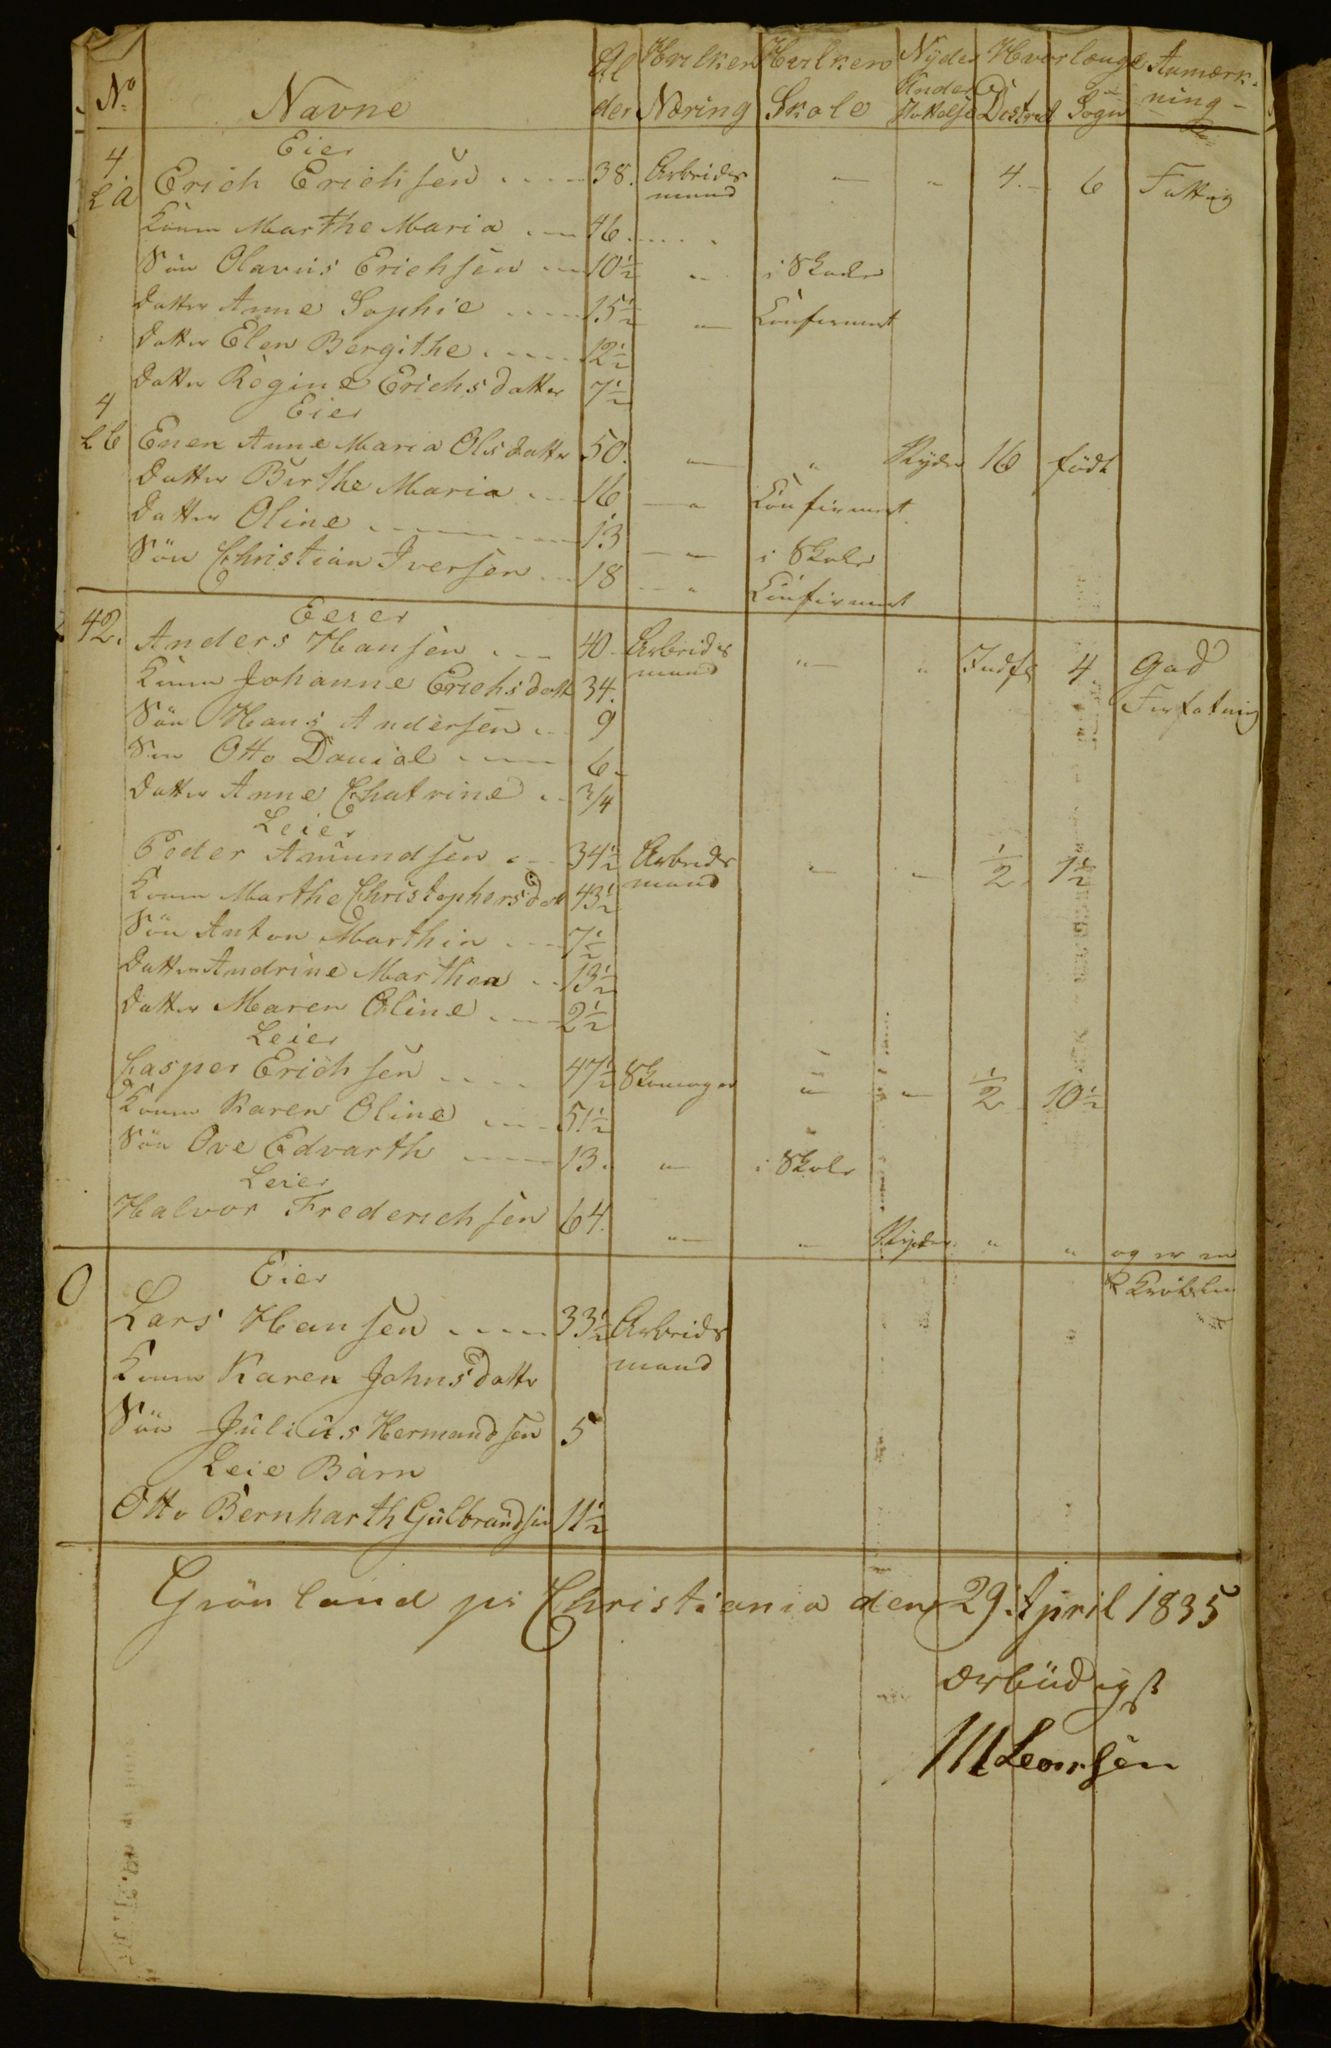 No Navne Alder Hvilken Næring Hvilken Skole Nyder Understøttelse Hvorlænge i Distrit i Sogn Anmærkning
Eier
4 L a Erich Erichsen 38. Arbeidsmand — " 4. 6 Fattig
Kone Marthe Maria 46
Søn Olavus Erichsen 10½ " i Skole
Datter Anne Sophie 15½ " Confirmert
Datter Elen Bergithe 12½
Datter Regine Erichsdatter 7½
Eier
4 L b Enen Anne Maria Olsdatter 50. " " Nyder 16 født
Datter Birthe Maria 16 " Confirmert
Datter Oline 13 " i Skole
Søn Christian Iversen 18 " Confirmert
Eeier
42. Anders Hansen 40 Arbeidsmand " " Indf 4. God Forfatning
Kone Johanne Erichsdatt 34.
Søn Hans Andersen 9
Søn Otto Danial 6
Datter Anne Chatrine 3/4
Leier
Peder Amundsen 34½ Arbeidsmand " " ½ 1½
Kone Marthe Christophersdat 43½
Søn Anton Marthin 7½
Datter Andrine Marthea 13½
Datter Maren Oline 2½
Leier
Casper Erichsen 47½ Skomager " " ½ 10½
Kone Karen Oline 51½
Søn Ove Edvarth 13. " i Skole
Leier
Halvor Frederichsen 64. " " Nyder " " og er en Krøbling
Eier
0 Lars Hansen 33½ Arbeidsmand
Kone Karen Johnsdatter
Søn Julius Hermandsen 5
Leie Barn
Otto Bernharth Gulbrandsen 11½
Grønland pr Christiania den 29 April 1835
ærbüdigst
M Learsen